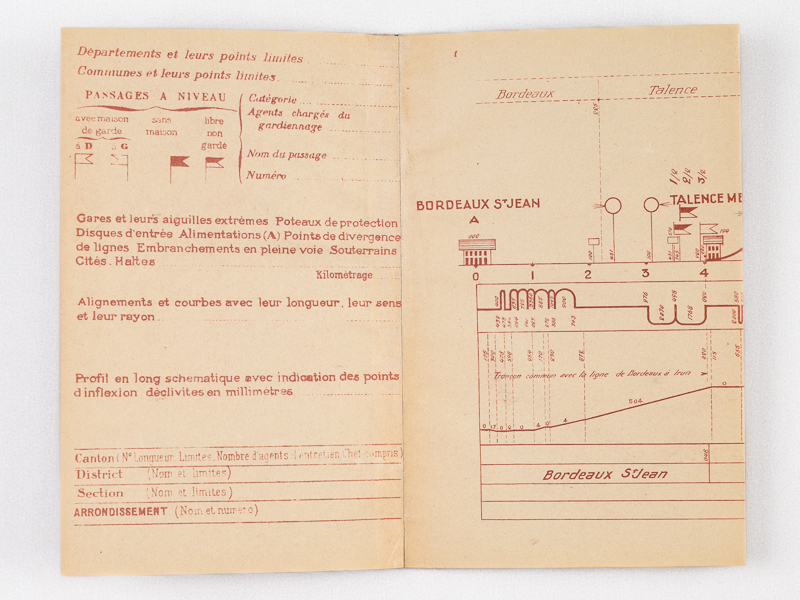 Départements et leurs points limites
Communes et leurs points limites.
PASSAGES A NIVEAU
avec maison
de garde
à D à G
sans
maison
libre
non
gardé
Catégorie
Agents chargés du
gardiennage
Nom du passage
Numéro
Gares et leurs aiguilles extrêmes Poteaux de protection
Disques d'entrée Alimentations (A) Points de divergence
de lignes Embranchements en pleine voie Souterrains
Cités. Haltes
Kilométrage
Alignements et courbes avec leur longueur, leur sens
et leur rayon
Profil en long schematique avec indication des points
d'inflexion déclivites en millimètres
Canton (Nº Longueur, Limites, Nombre d'agents: l'entretien, Chef compris)
District (Nom et limites)
Section (Nom et limites)
ARRONDISSEMENT (Nom et numéro)
Bordeaux Talence
1/2 2/2 3/2
BORDEAUX ST JEAN
A
TALENCE ME
0 1 2 3 4
Tronçon commun avec la ligne de Bordeaux à Irun
504
Bordeaux St Jean